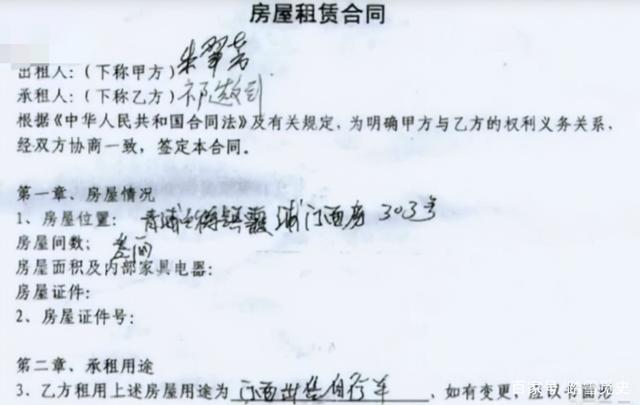 房屋租赁合同
出租人:(下称甲方)朱翠芳
承租人:(下称乙方)祁
根据《中华人民共和国合同法》及有关规定,为明确甲方与乙方的权利义务关系,
经双方协商一致,签定本合同。
第一章、房屋情况
1、房屋位置:青浦 镇 浦 西房303号
房屋间数:叁间
房屋面积及内部家具电器:
房屋证件:
2、房屋证件号:
第二章、承租用途
3、乙方租用上述房屋用途为 自行车 ,如有变更,应以书面
百家号